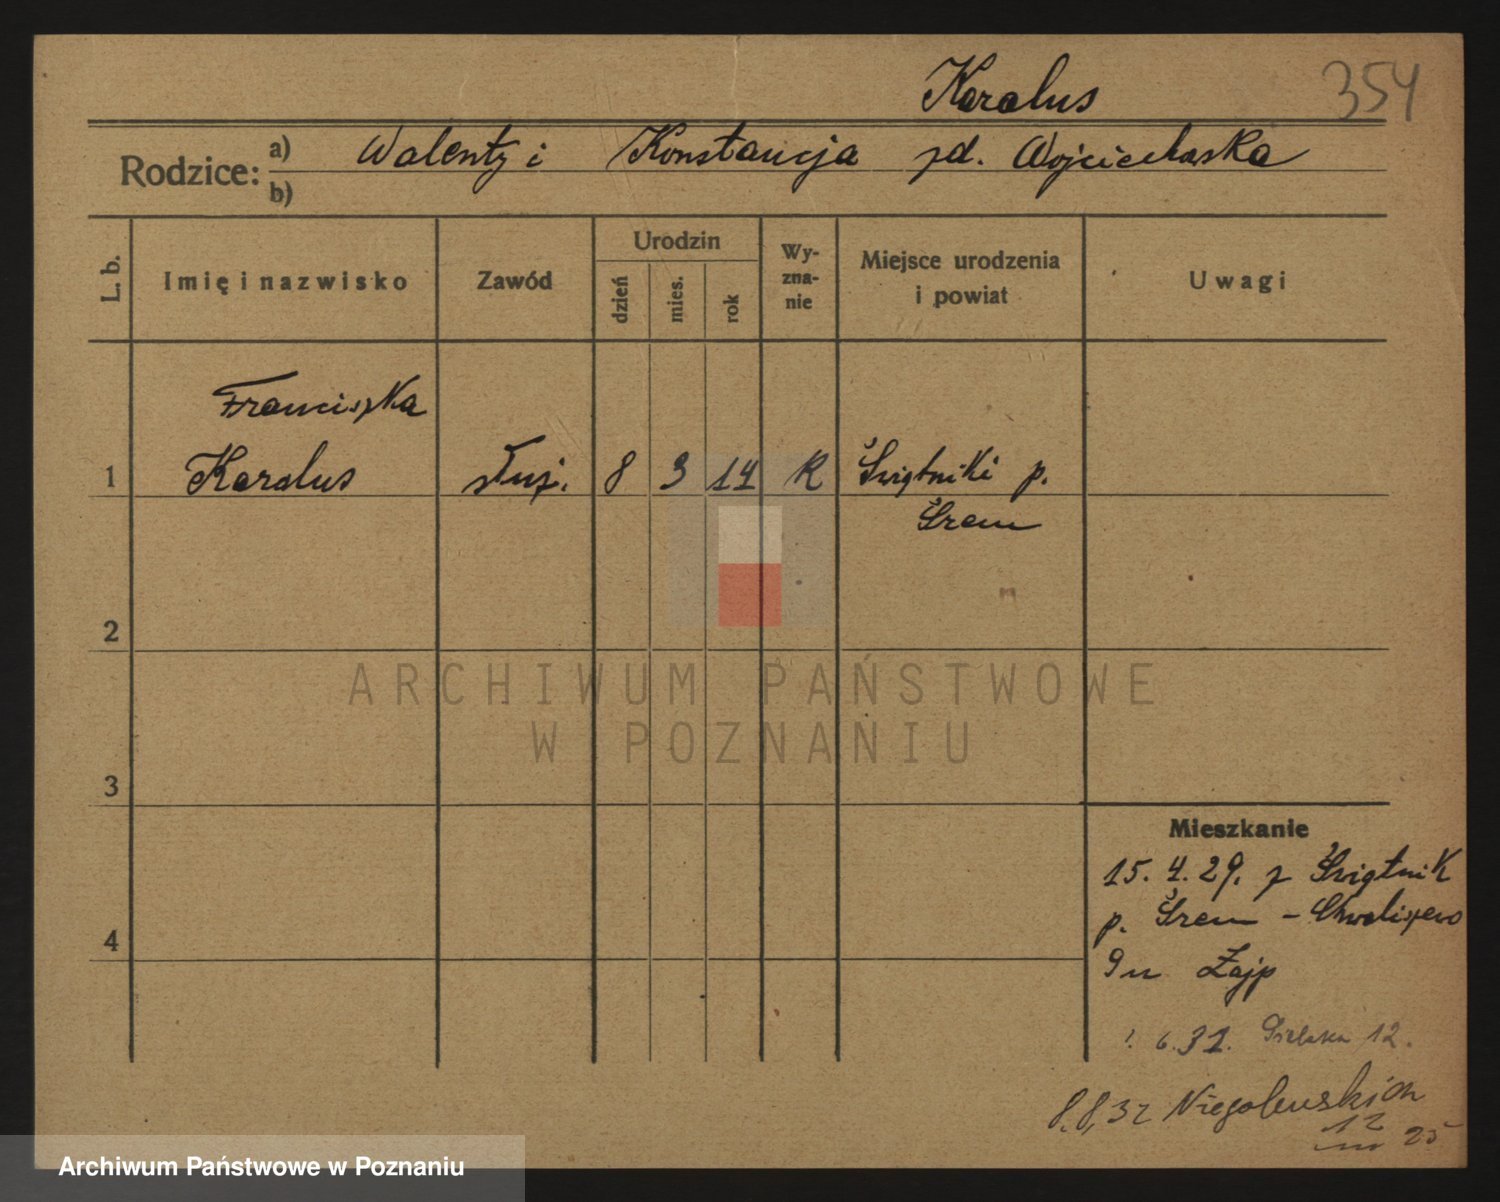 Karalus 354
Rodzice: a) Walenty i Konstancja zd. Wojciechowska
b)
L. b. Imię i nazwisko Zawód Urodzin dzień mies. rok Wy-zna-nie Miejsce urodzenia i powiat Uwagi
Franciszka
1 Karalus służ. 8 3 14 R Świątniki p.
Śrem
2
ARCHIWUM PAŃSTWOWE
W POZNANIU
3
Mieszkanie
15. 4. 29. z Świątnik
p. Śrem - Chwaliszewo
4
9 u Zajp
1. 6. 31. 12.
8.8.32 Niegolewskich
12
25
Archiwum Państwowe w Poznaniu